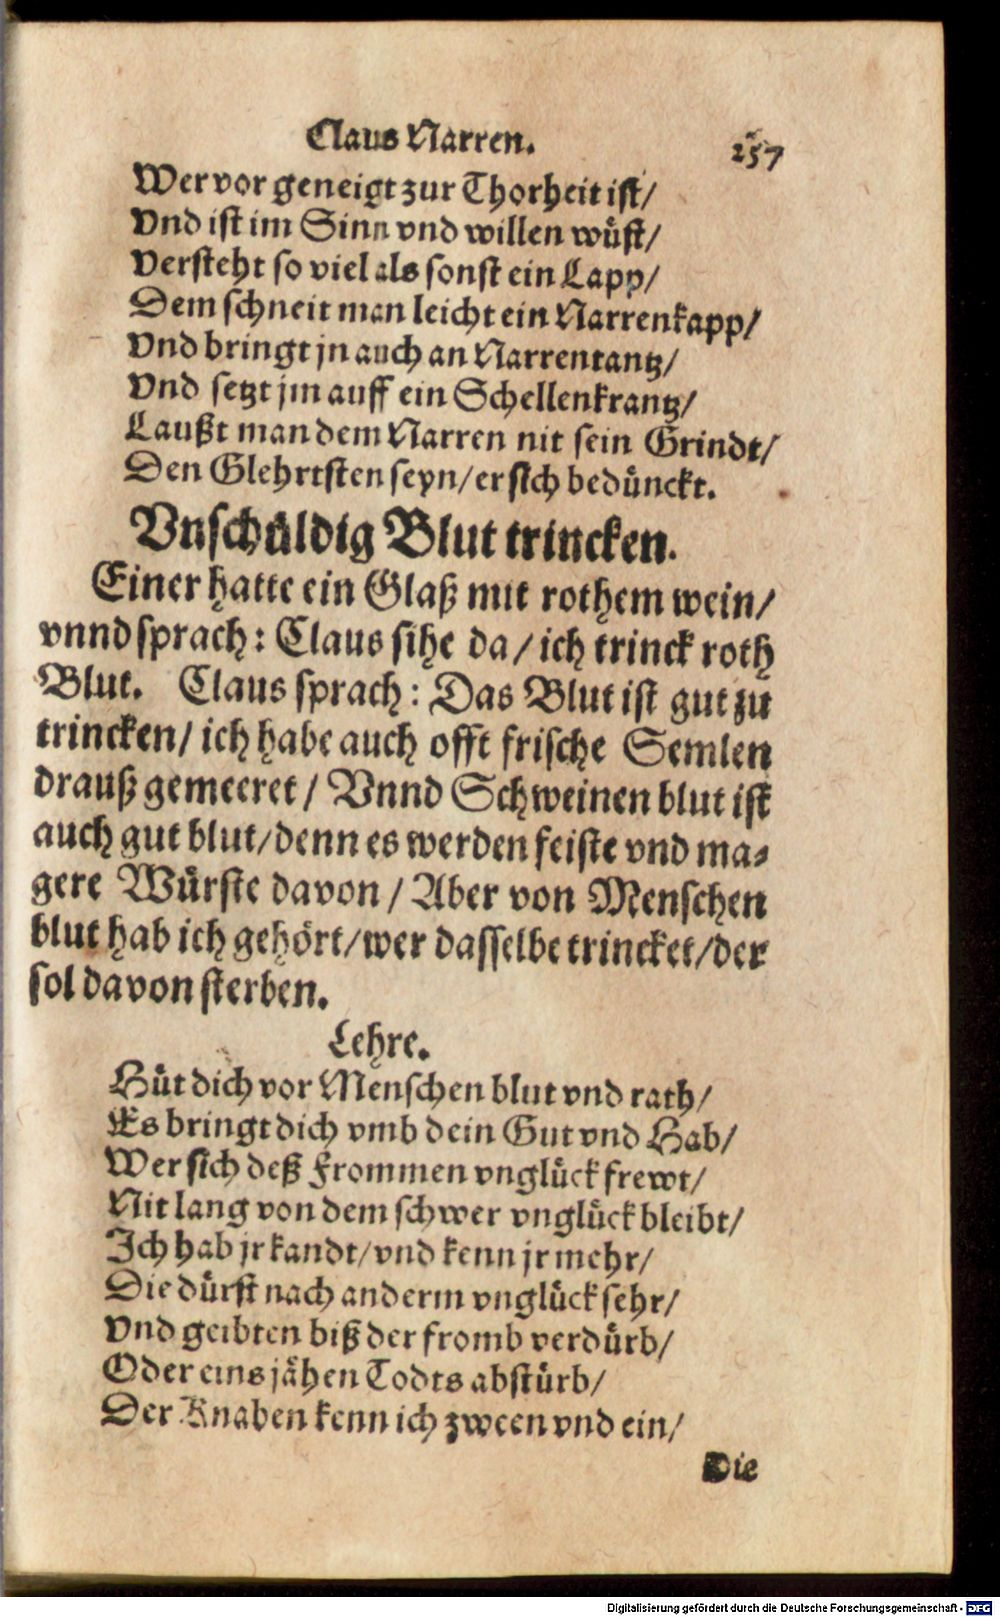 Claus Narren.
257
Wer vor geneigt zur Thorheit ist/
Vnd ist im Sinn vnd willen wüst/
Versteht so viel als sonst ein Lapp/
Dem schneit man leicht ein Narrenkapp/
Vnd bringt jn auch an Narrentantz/
Vnd setzt jm auff ein Schellenkrantz/
Laußt man dem Narren nit sein Grindt/
Den Glehrtsten seyn/ er sich bedünckt.
Vnschüldig Blut trincken.
Einer hatte ein Glaß mit rothem wein/
vnnd sprach: Claus sihe da/ ich trinck roth
Blut. Claus sprach: Das Blut ist gut zu
trincken/ ich habe auch offt frische Semlen
drauß gemeeret/ Vnnd Schweinen blut ist
auch gut blut/ denn es werden feiste vnd ma-
gere Würste davon/ Aber von Menschen
blut hab ich gehört/ wer dasselbe trincket/ der
sol davon sterben.
Lehre.
Hüt dich vor Menschen blut vnd rath/
Es bringt dich vmb dein Gut vnd Hab/
Wer sich deß Frommen vnglück frewt/
Nit lang von dem schwer vnglück bleibt/
Ich hab jr kandt/ vnd kenn jr mehr/
Die dürst nach anderm vnglück sehr/
Vnd geibten biß der fromb verdürb/
Oder eins jähen Todts abstürb/
Der Knaben kenn ich zween vnd ein/
Die
Digitalisierung gefördert durch die Deutsche Forschungsgemeinschaft - DFG